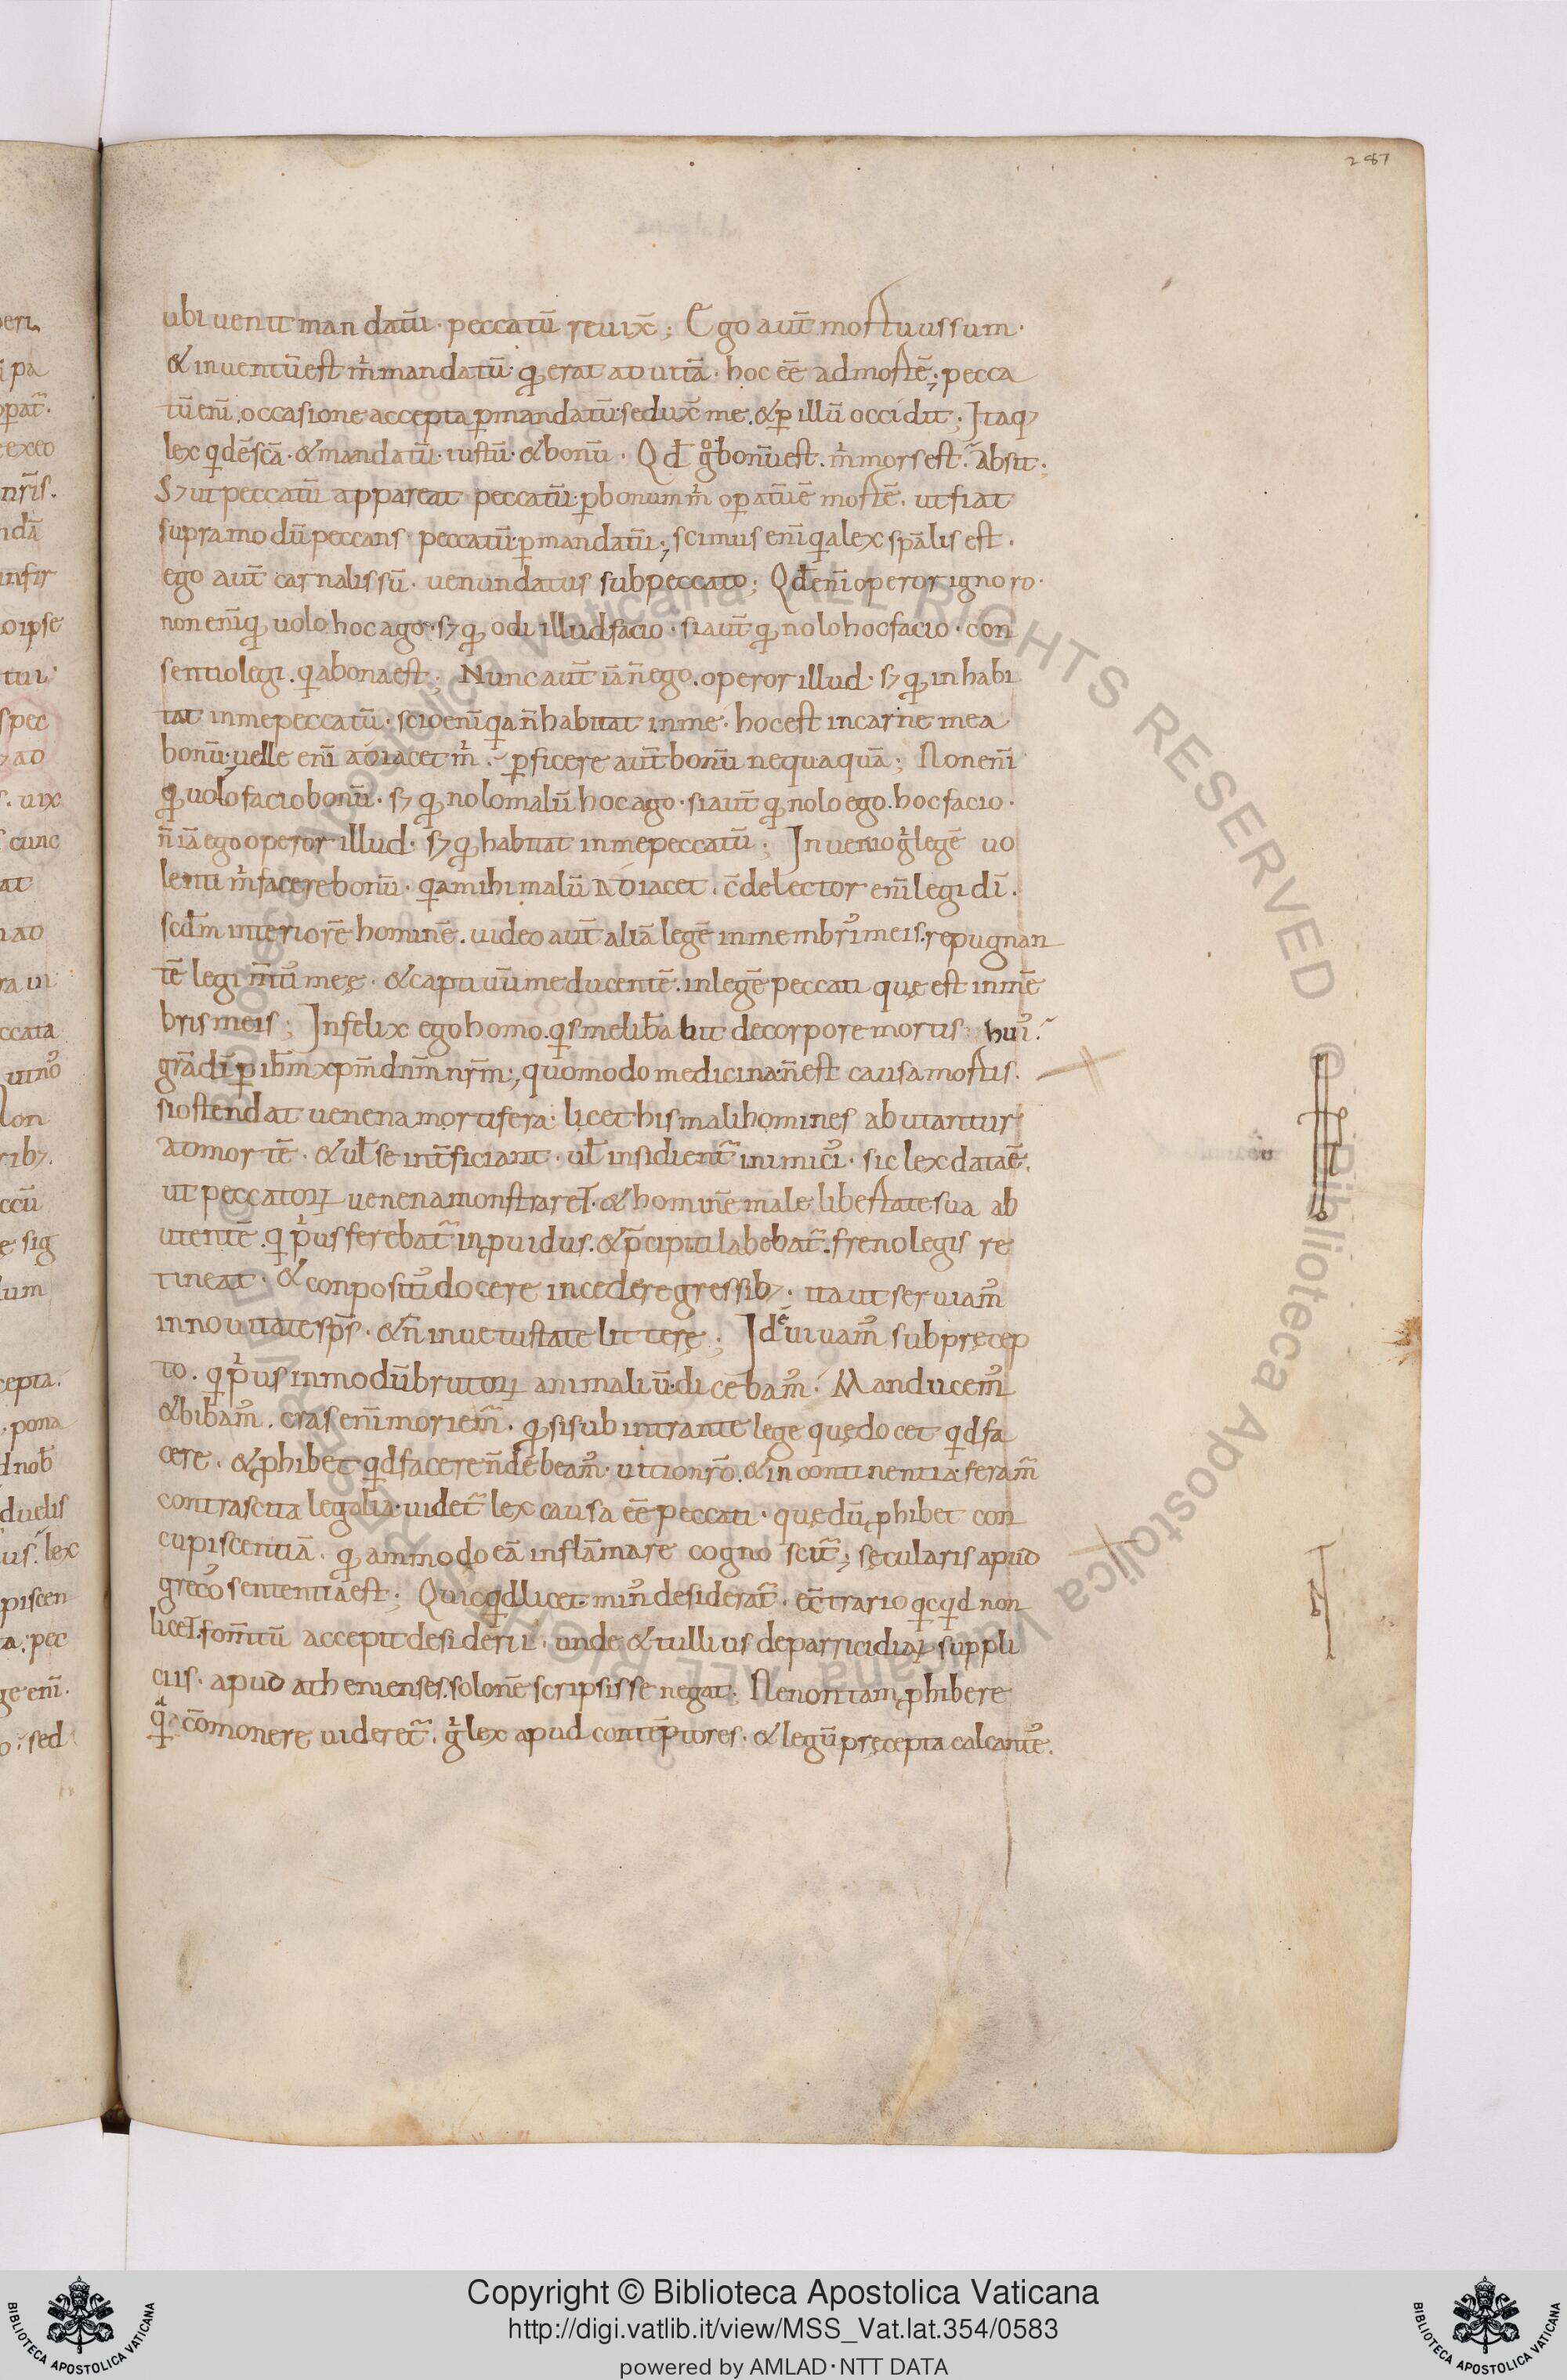 287
ubi uenit mandatū · peccatū reuix̄; Ego aut̄ mortuus sum ·
& inuentū est m̄ mandatū · qđ erat ad uitā · hoc eē ad mortē; pecca
tū eni̅ occasione accepta ꝑ mandatū · sedux̄ me · & ꝑ illū occidit; Itaq;
lex qidē sc̄a · & mandatū · iustū · & bonū · Qđ g̊ bonū est · m̄ mors est · absit;
S; ut peccatū appareat peccatū · ꝑ bonum m̄ operatū ē mortē · ut fiat
supra modū peccans · peccatū · ꝑ mandatū; scimus eni̅ qia lex sp̄alis est ·
ego aut̄ carnalis sū · uenundatus sub peccato; Qđ eni̅ operor ignoro ·
non eni̅ qđ uolo hoc ago · s; qđ odi illud facio · si aut̄ qđ nolo hoc facio · con
sentio legi · qia bona est; Nunc aut̄ iā n̄ ego · operor illud · s; qđ inhabi
tat in me peccatū · scio eni̅ qia n̄ habitat in me · hoc est in carne mea
bonū · uelle eni̅ adiacet m̄ · ꝑficere aut̄ bonū nequaquā; Non eni̅
qđ uolo facio bonū · s; qđ nolo malū hoc ago · si aut̄ qđ nolo ego · hoc facio ·
n̄ iā ego operor illud · s; qđ habitat in me peccatū; Inuenio g̊ legē uo
lenti m̄ facere bonū · qia mihi malū adiacet · c̄delector eni̅ legi dī ·
scđm interiorē hominē · uideo aut̄ aliā legē in membri᷒ meis · repugnan
tē legi m̄ti᷒ meę · & captiuū me ducentē · in legē peccati quę est in mē
bris meis; Infelix ego homo · qis me lib̄abit de corpore mortis hui᷒
gr̄a dī ꝑ ih̄m xp̄m dn̄m nr̄m; quomodo medicina n̄ est causa mortis ·
si ostendat uenena mortifera · licet his mali homines abutantur
ad mortē · & ul̄ se int̄ficiant · ul̄ insidient᷒ inimici᷒ · sic lex data ē ·
ut peccatoꝝ uenena monstraret · & hominē male libertate sua ab
utentē · qi p̄us ferebat᷒ inꝓuidus · & p̄cipiti labebat᷒ · freno legis re
tineat · & conposit᷒i docere incedere gressib; · ita ut seruiam᷒
in nouitate sp̄s · & n̄ in uetustate litterę; Id ē uiuam᷒ sub pręcep
to · qi p̄us in modū brutoꝝ animaliū · dicebam᷒ · Manducem᷒
& bibam᷒ · cras eni̅ moriem᷒ · qđ si subintrante lege quę docet qid fa
cere · & ꝓhibet qid facere n̄ debeam᷒ · uitio nr̄o · & incontinentia feram᷒
contra scita legalia · uidet᷒ lex causa eē peccati · quę dū ꝓhibet con
cupiscentiā · qđammodo eā inflāmare cognoscit᷒; sęcularis apud
greco᷒ sententia est; Quicqid licet · min᷒ desiderat᷒ · ec̄trario qicqid non
licet · fom̄tū accepit desiderii · unde & tullius de parricidiaꝝ suppli
ciis · apud athenienses · solonē scripsisse negat · Ne non tam ꝓhibere
qia c̄omonere uideret᷒ · g̊ lex apud contēptores · & legū pręcepta calcante᷒ ·
Copyright © Biblioteca Apostolica Vaticana
http://digi.vatlib.it/view/MSS_Vat.lat.354/0583
powered by AMLAD·NTT DATA